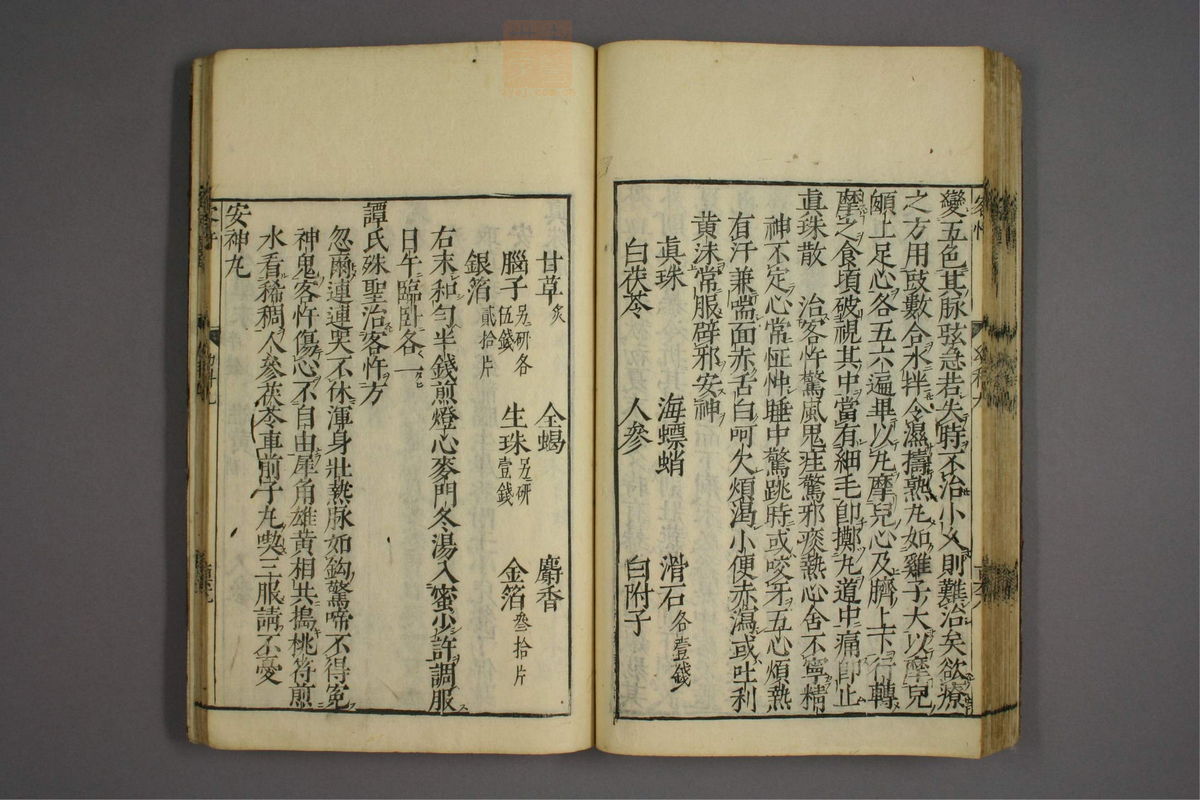 變五色其脉弦急若失時不治小久則難治矣欲療
之方用豉數合水拌令濕擣熟丸如雞子大以摩兒
顖上足心各五六遍畢以丸摩兒心及臍上下行轉
摩之食頃破視其中當有細毛即擲丸道中痛即止
眞珠散　治客忤驚風鬼疰驚邪痰熱心舍不寧精
神不定心常怔忡睡中驚跳時或咬牙五心煩熱
有汗兼喘面赤舌白呵欠煩渴小便赤濁或吐利
黄沫常服辟邪安神
眞珠　海螵蛸　滑石各壹錢
白茯苓　人參　白附子
甘草炙　全蝎　麝香
腦子另研各伍錢　生珠另研壹錢　金箔叁拾片
銀箔貳拾片
右末和匀半錢煎燈心麥門冬湯入蜜少許調服
日午臨卧各一
譚氏殊聖治客忤方
忽爾連連哭不休渾身壯熱脉如鈎驚啼不得
神鬼客忤傷心不自由犀角雄黄相共搗桃符煎
水看稀稠人參茯苓車前子丸喫三服請不憂
安神丸